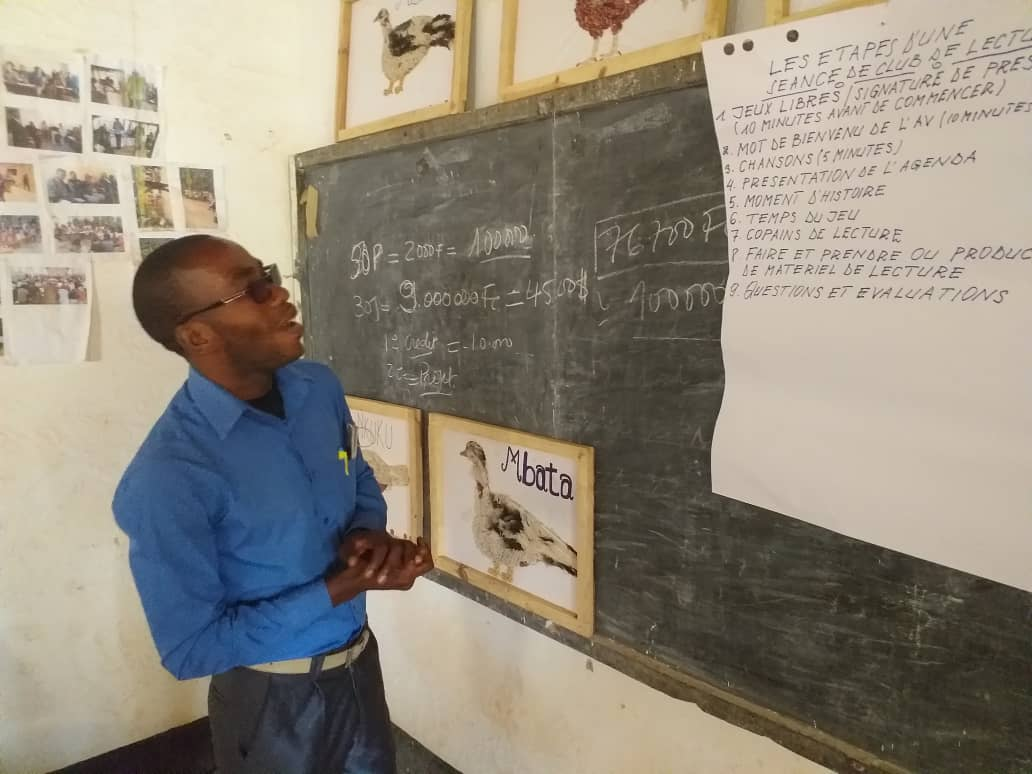 LES ETAPES D'UNE
SEANCE DE CLUB DE LECTU
1. JEUX LIBRES (SIGNATURE DE PRES
(10 MINUTES AVANT DE COMMENCER)
2. MOT DE BIENVENU DE L'AV (10 MINUTES
3. CHANSONS (5 MINUTES)
4. PRESENTATION DE L'AGENDA
5. MOMENT D'HISTOIRE
6. TEMPS DU JEU
7 COPAINS DE LECTURE
8 FAIRE ET PRENDRE OU PRODUC
DE MATERIEL DE LECTURE
9. QUESTIONS ET EVALUATIONS
50P = 2000F = 100000
76.700 F
30J = 9.000000Fc = 4500$
100000
1° Credit =
2° = Projet
NKUKU
Mbata